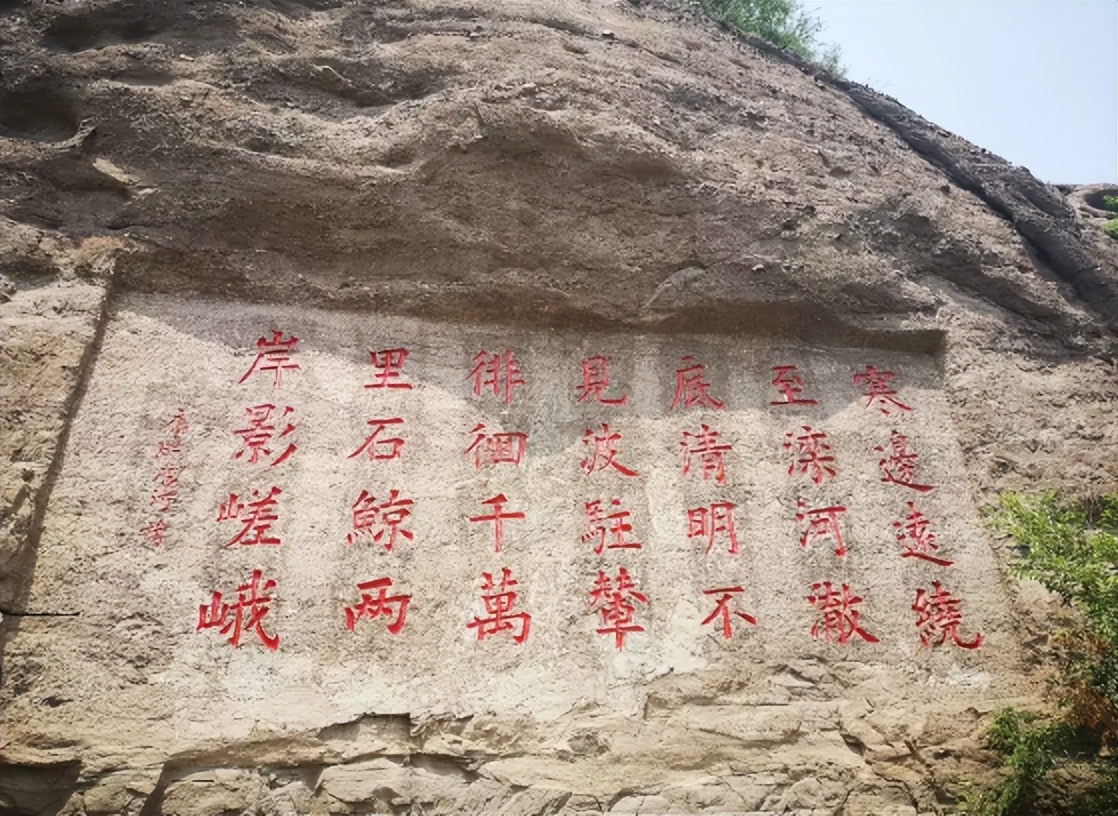 寒邊遠繞
至灤河澈
底清明不
見波駐輦
徘徊千萬
里石鯨两
岸影嵯峨